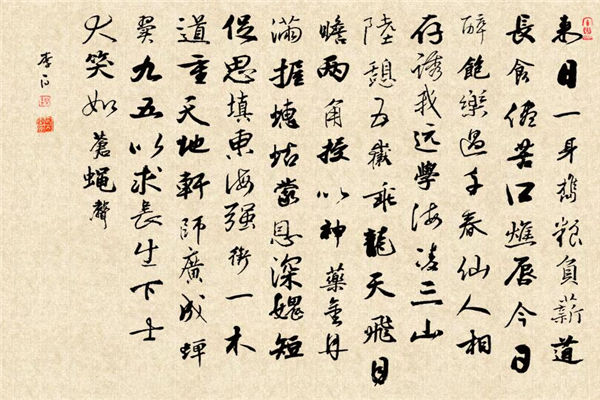 來日一身攜粮負薪道
長食儘苦口燋唇今日
醉飽樂過千春仙人相
存誘我远學海凌三山
陸憩五嶽乘龍天飛目
瞻兩角授以神藥金丹
滿握蟪蛄蒙恩深媿短
促思填東海强銜一木
道重天地軒師廣成蟬
翼九五以求長生下士
大笑如蒼蝇聲
李白